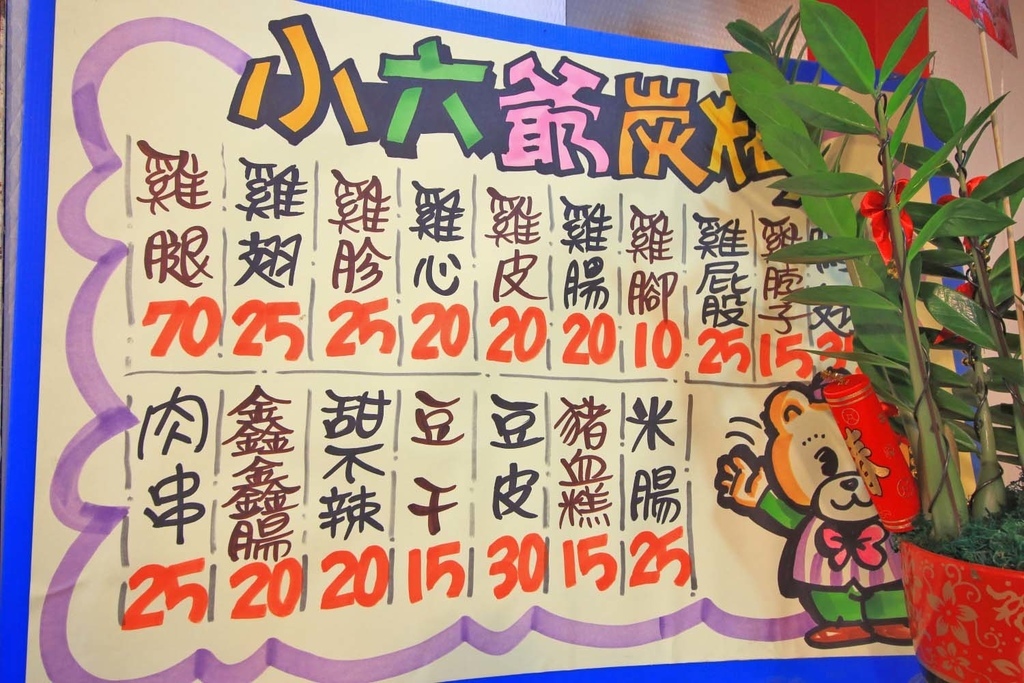 小六爺炭烤
雞腿 70
雞翅 25
雞胗 25
雞心 20
雞皮 20
雞腸 20
雞腳 10
雞屁股 25
雞脖子 15
肉串 25
鑫鑫腸 20
甜不辣 20
豆干 15
豆皮 30
豬血糕 15
米腸 25